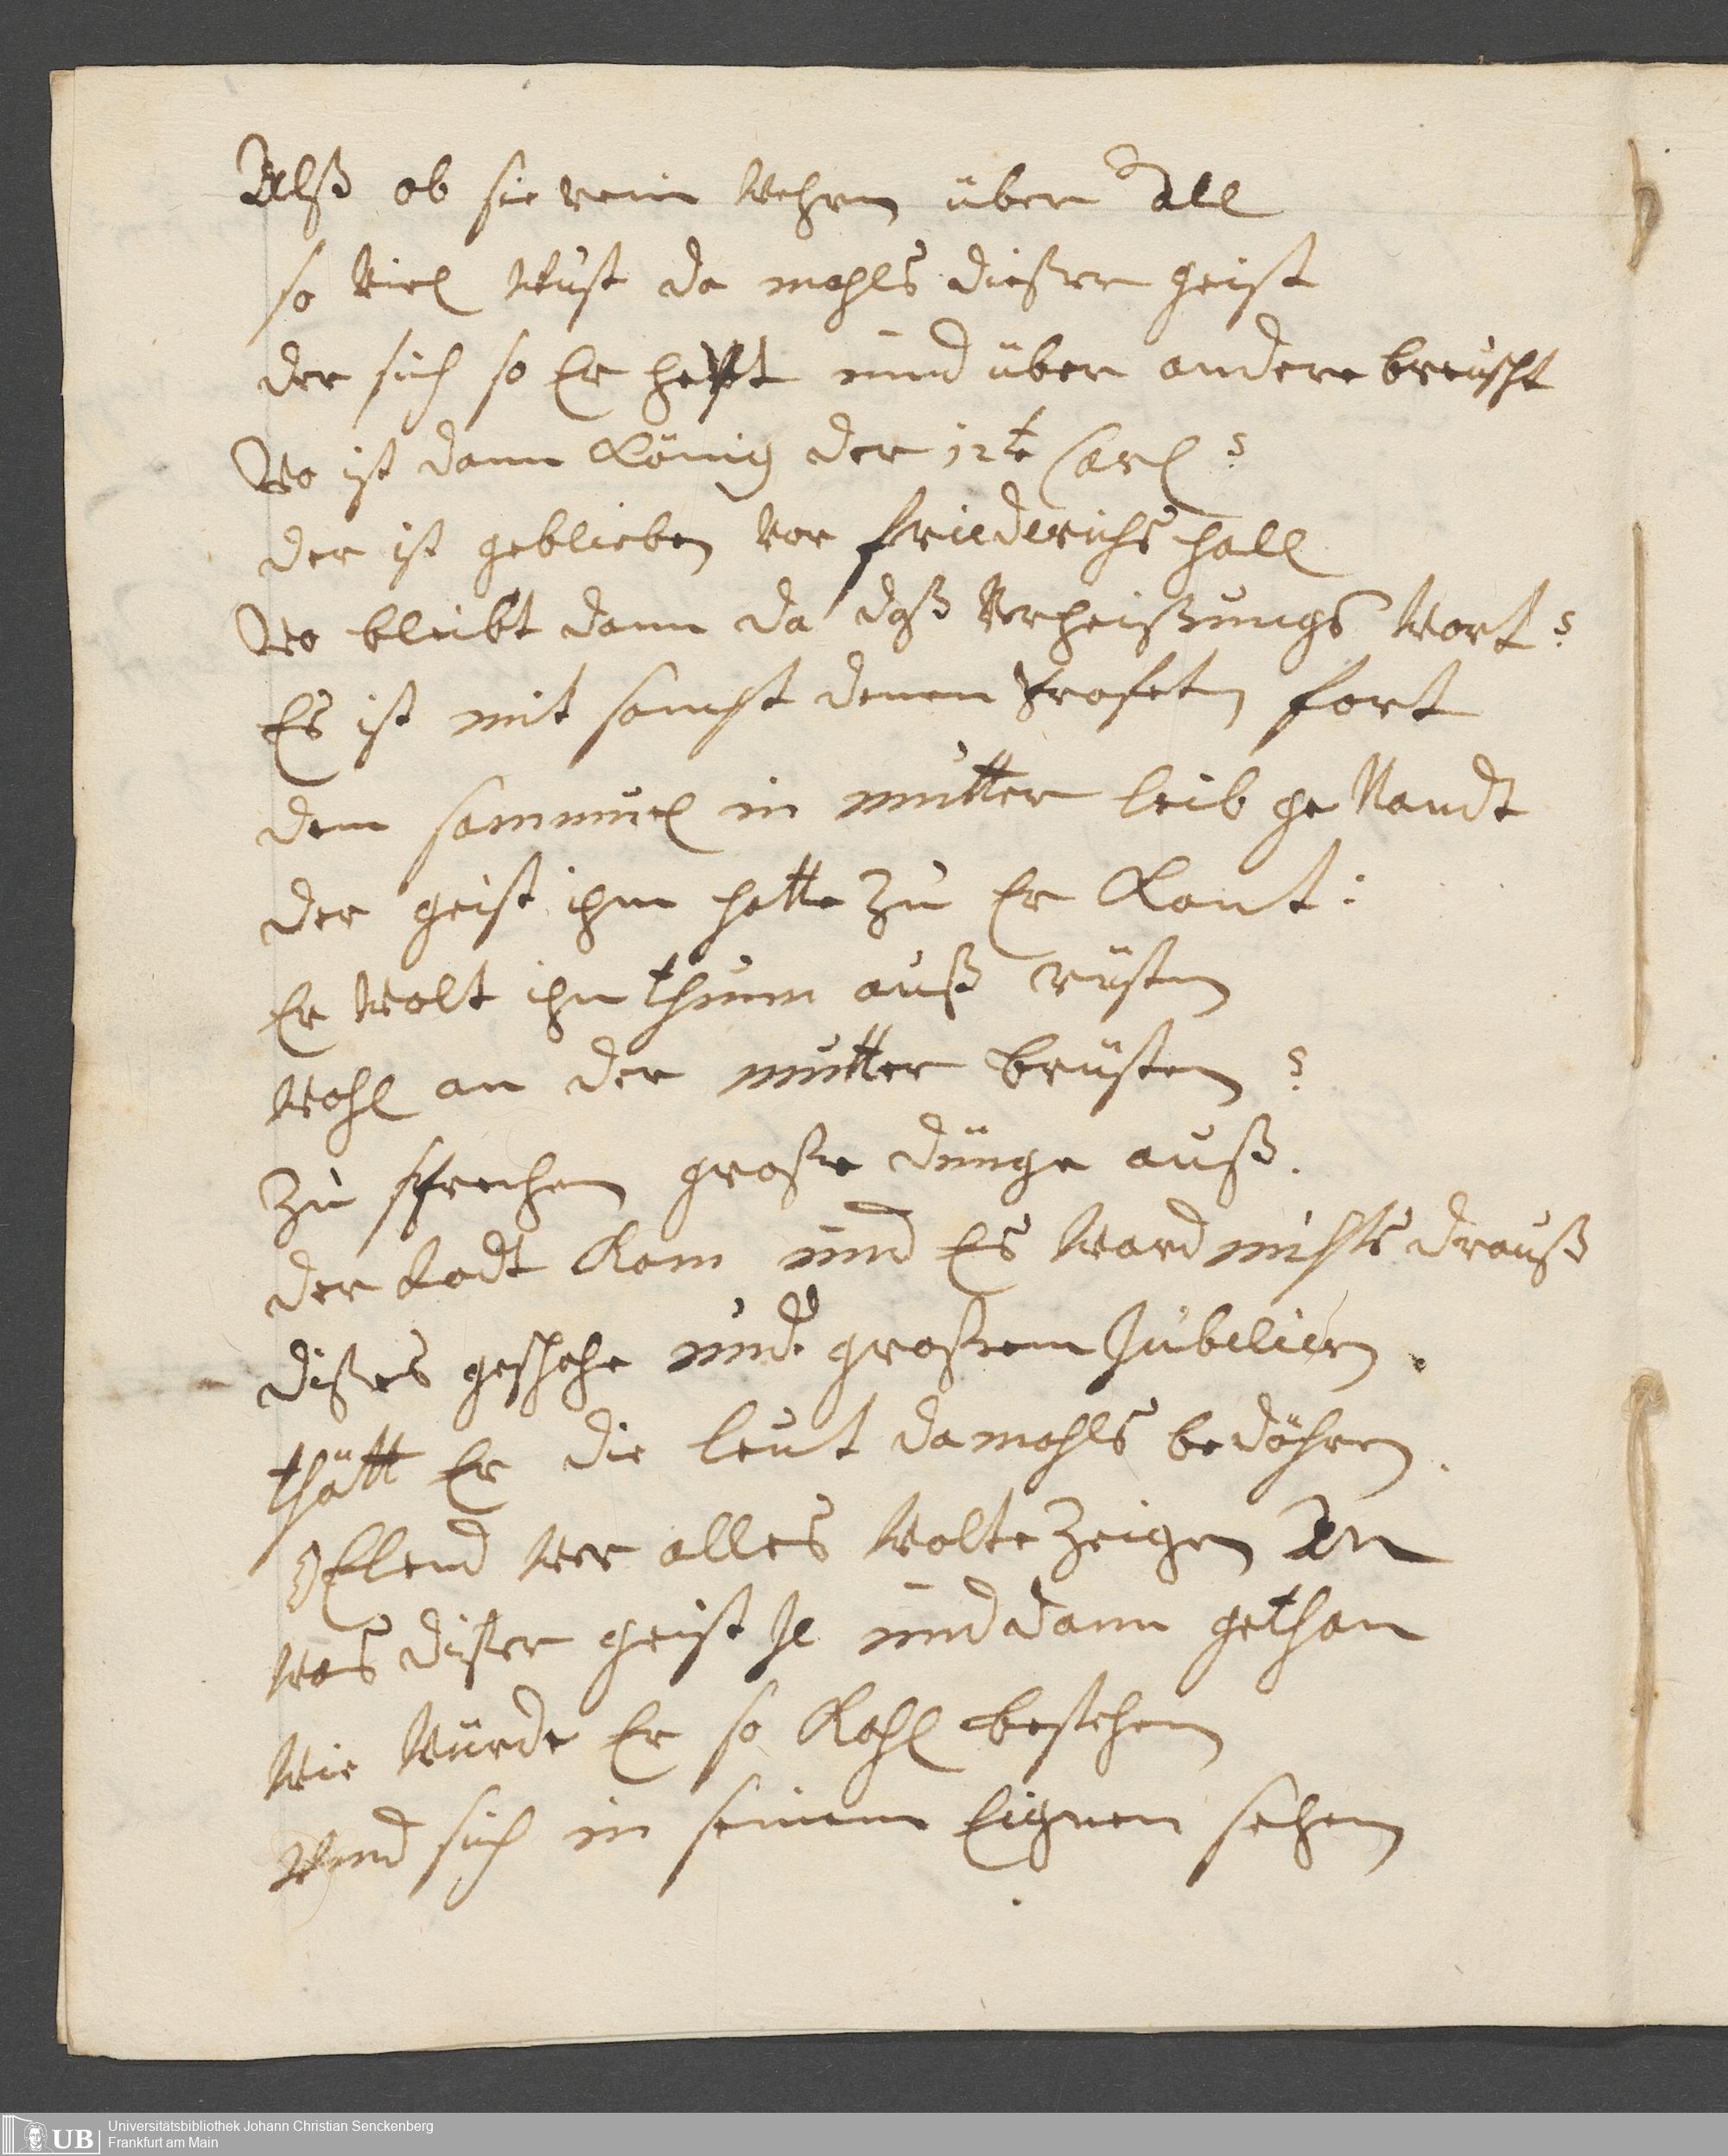 Alß ob sie rein wehren über All
so viel wust da mahls dießer geist
der sich so Er hebt und über andere breuscht
Wo ist dann König der 12te Carl?
der ist geblieben vor friederichs hall
Wo bleibt dann da daß Verheißungs wort?
Es ist mit sampt denen Profeten fort
dem sammuel in mutter leib ge Nandt
der geist ihm hatte zu Er Kant:
Er wolt ihn thum auß rüsten
wohl an der mutter brüsten?
zu sprechen große dünge auß.
der todt kam und Es ward nichts drauß
dißes geschahe und großem Jubelieren.
thätt Er die leut damahls bedöhren.
O Elend wer alles wolte zeigen An
was dißer geist Je und dann gethan
wie würde Er so Kahl bestehen
Vnd sich in seinem Eignen sehen
UB
Universitätsbibliothek Johann Christian Senckenberg
Frankfurt am Main